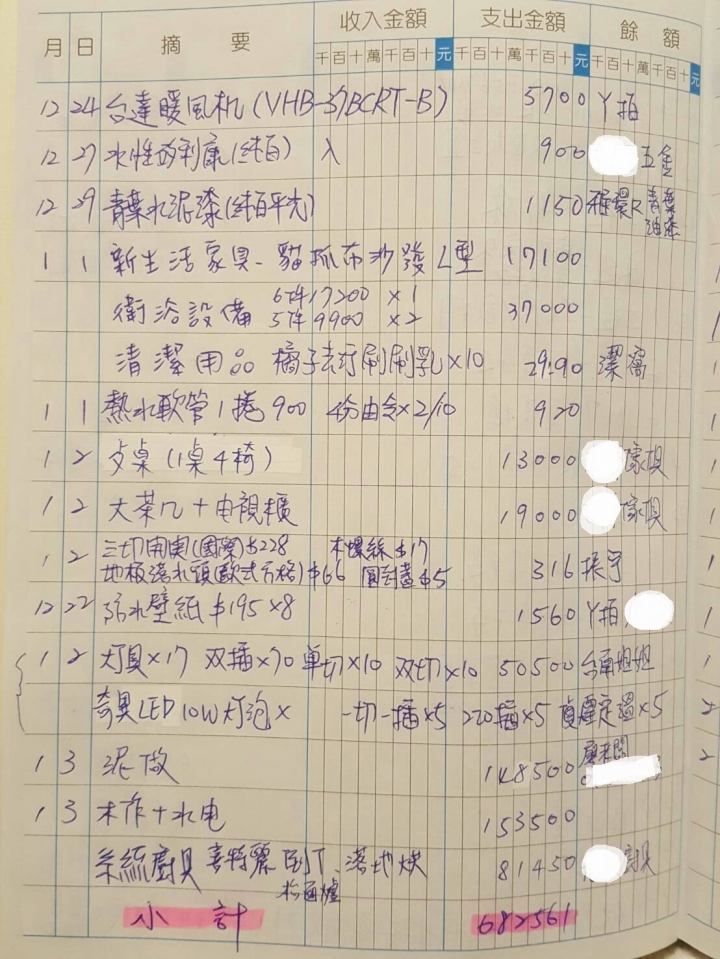 月 日 摘 要 收入金額 支出金額 餘 額
千百十萬千百十元 千百十萬千百十元 千百十萬千百十元
12 24 台達暖風机(VHB-37BCRT-B) 5700 丫拍
12 27 水性矽利康(純白) 入 900 五金
12 29 青葉水泥漆(純白平光) 1150 青葉油漆
1 1 新生活家具-貓抓布沙發L型 17100
衛浴設備 6件17200 ×1
5件9900 ×2 37000
清潔用品 橘子去污刷刷乳×10 2990 潔窩
1 1 熱水軟管1捲900 4分由令×2/10 920
1 2 桌(1桌4椅) 13000 傢俱
1 2 大茶几+电視櫃 19000 傢俱
1 2 三切開関(國際)$228 木螺絲$17
地板落水頭(歐式方格)$66 $5 316 振宇
12 22 防水壁紙$195×8 1560 丫拍
1 2 灯具×17 双插×70 單切×10 双切×10 50500 台南姐姐
奇異LED 10W灯泡× 一切一插×5 220插×5 ×5
1 3 泥做 148500
1 3 木作+水电 153500
系統廚具 喜特麗 倒T、落地烘 81450 廚具
檯面爐
小 計 682561